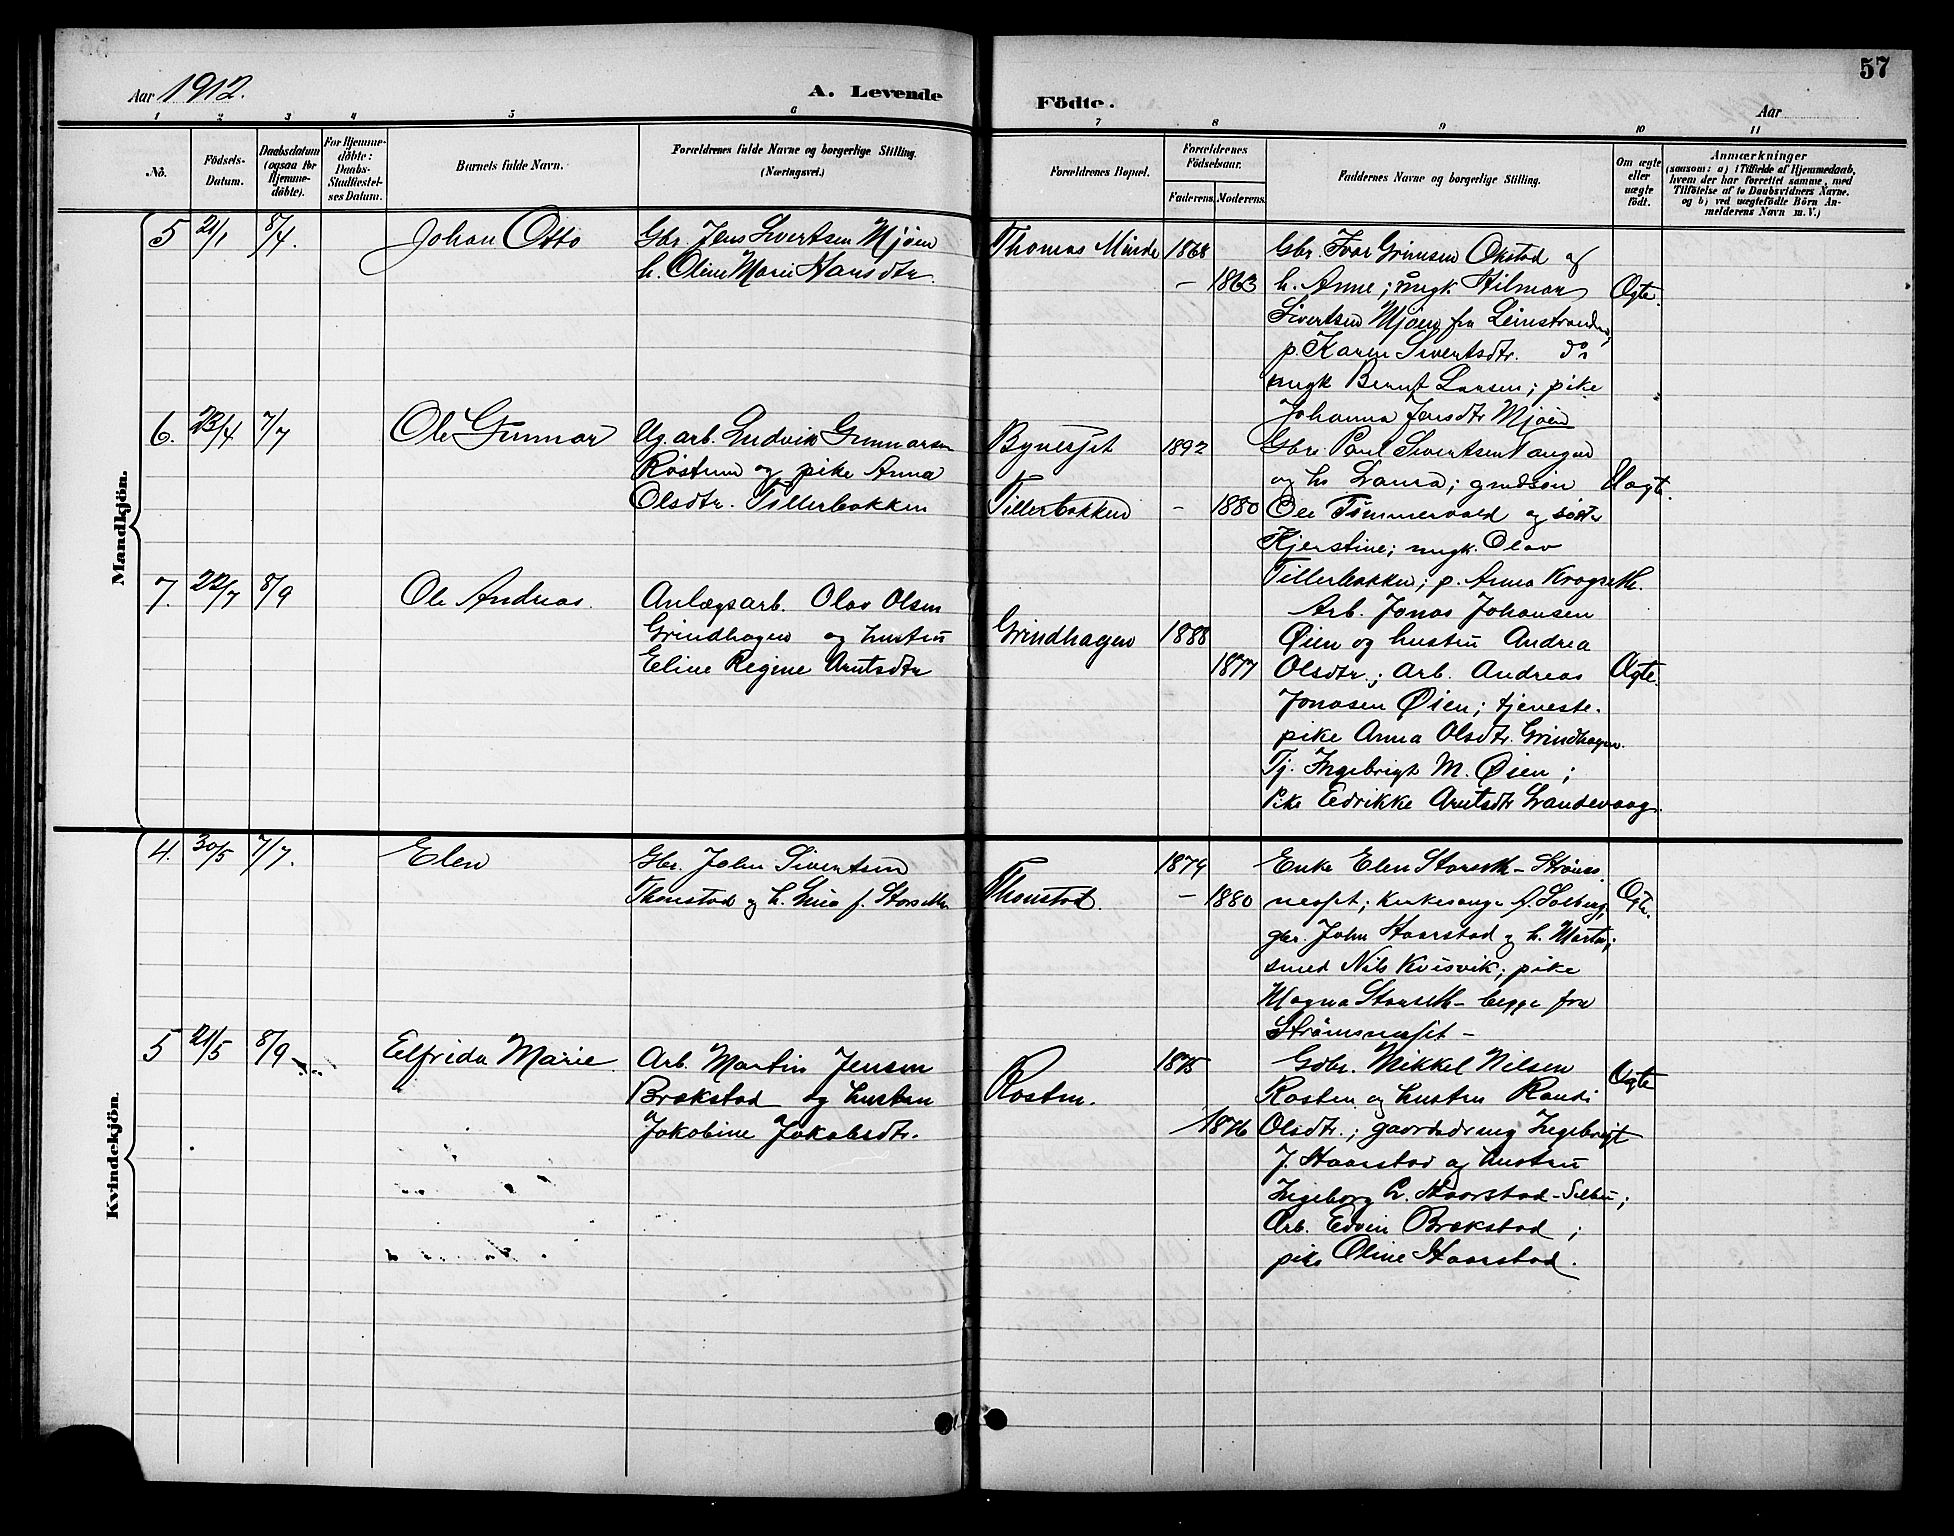 57
Aar 1912.
A. Levende Födte.
Aar
1 2 3 4 5 6 7 8 9 10 11
No.
Födsels-Datum.
Daabsdatum (ogsaa for Hjemmedöbte).
For Hjemmedöbte: Daabs-Stadfæstelses Datum.
Barnets fulde Navn.
Forældrenes fulde Navne og borgerlige Stilling. (Næringsvei.)
Forældrenes Bopæl.
Forældrenes Födselsaar.
Faderens. Moderens.
Faddernes Navne og borgerlige Stilling.
Om ægte eller uægte födt.
Anmærkninger
(saasom: a) i Tilfælde af Hjemmedaab, hvem der har forrettet samme, med Tilföielse af to Daabsvidners Navne, og b) ved uægtefödte Börn Anmelderens Navn m. V.)
Mandkjön.
5 21/1 8/4. Johan Otto
Gbr. Jens Sivertsen Mjøen
h. Oline Marie Hansdtr.
Thomas Minde 1868
– 1863
Gbr. Ivar Grimsen Okstad og
h. Anne; ungk. Hilmar
Sivertsen Mjøen fra Leinstranden,
p. Karen Sivertsdtr. do
ungk Bernt Larsen; pike
Johanna Jensdtr Mjøen
Ægte.
6. 23/4 7/7 Ole Gunnar
Ug. arb. Ludvik Gunnarsen
Røstum og pike Anna
Olsdtr. Tillerbakken
Byneset 1892
Tillerbakken – 1880
Gbr. Paul Sivertsen
og h. Laura; grudsøn
Ole Tømmervold og søster
Kjerstine; ungk. Olav
Tillerbakken; p. Anna Krogseth.
Uægte.
7. 22/7 8/9 Ole Andreas.
Anlægsarb. Olav Olsen
Grindhagen og hustru
Eline Regine Arntsdtr
Grindhagen 1888
1877
Arb. Jonas Johansen
Øien og hustru Andrea
Olsdtr.; Arb. Andreas
Jonasen Øien; tjeneste-
pike Anna Olsdtr. Grindhagen.
Tj. Ingebrigt M. Øien;
Pike Edrikke Arntsdtr Landevaag.
Ægte.
Kvindekjön.
4. 30/5 7/7. Elen
Gbr. John Sivertsen
Thonstad og h. Gina f. Storseth
Thonstad. 1879
– 1880
Enke Elen Storseth – Strøms-
neset; kirkesanger Solberg,
gbr. John Haarstad og h. Marta;
smed Nils Kvisvik; pike
Magna Storseth – begge fra
Strømsneset –
Ægte.
5 21/5 8/9 Elfrida Marie
Arb. Martin Jensen
Brækstad og hustru
Jakobine Jakobsdtr.
Rosten. 1875
1876
Gdbr. Mikkel Nilsen
Rosten og hustru Randi
Olsdtr.; gaardsdreng Ingebrigt
J. Haarstad og hustru
Ingeborg L. Haarstad – Selbu;
Arb. Edvin Brækstad;
pike Oline Haarstad.
Ægte